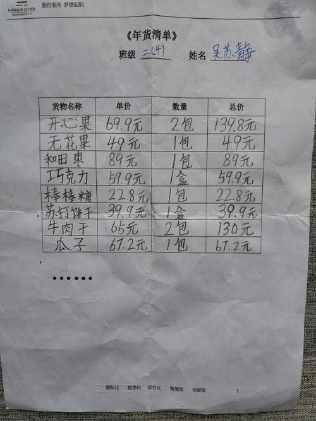 《年货清单》
班级 二(4) 姓名
货物名称 单价 数量 总价
开心果 69.9元 2包 139.8元
无花果 49元 1包 49元
和田枣 89元 1包 89元
巧克力 59.9元 1盒 59.9元
棒棒糖 22.8元 1包 22.8元
苏打饼干 39.9元 1盒 39.9元
牛肉干 65元 2包 130元
瓜子 67.2元 1包 67.2元
······